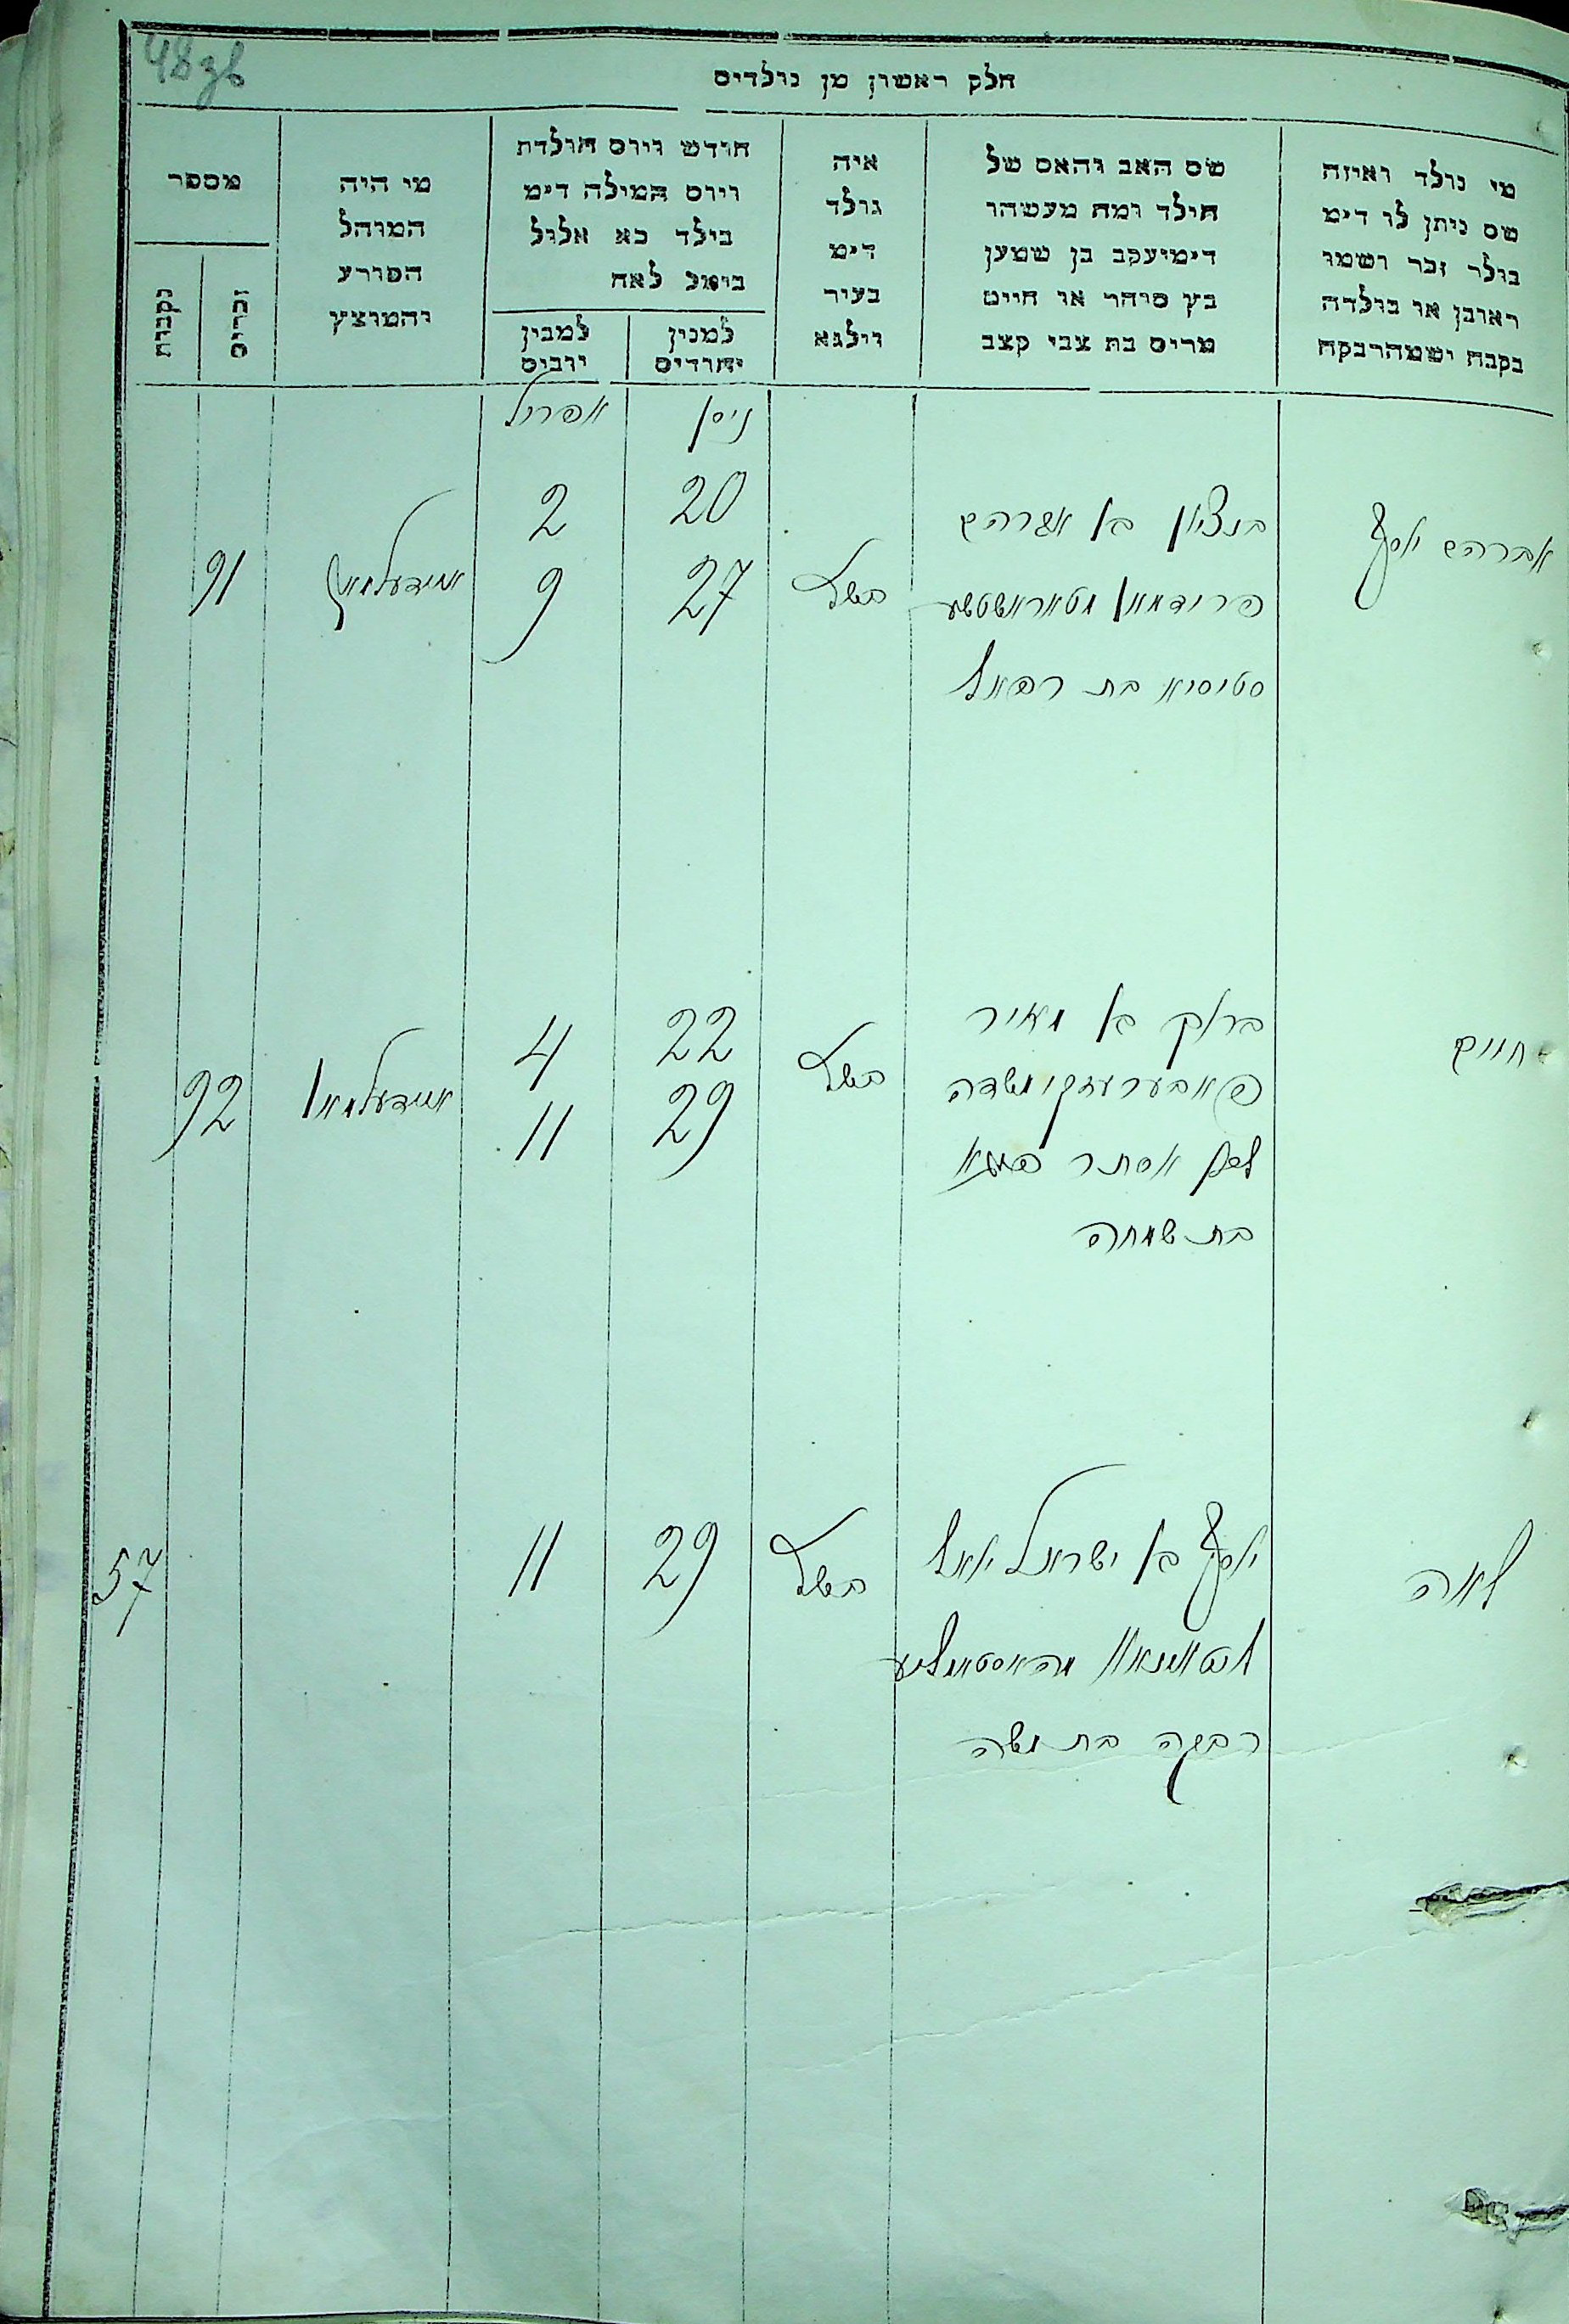 48зв
חלק ראשון מן נולדים
מי נולד ואיזה
שם ניתן לו דימ
נולד זכר ושמו
ראובן או נולדה
נקבה ושמהרבקה
שם האב והאם של
הילד ומה מעשהו
דימיעקב בן שמען
כץ סוחר או חייט
מרים בת צבי קצב
איה
נולד
דימ
בעיר
ווילנא
חודש ויום הולדת
ויום המילה דימ
נילד כא אלול
נימל לאח
למנין
יהודים
למנין
יוניס
מי היה
המוהל
הפורע
והמוצץ
מספר
זכרים
נקבות
ניסן
אפריל
אברהם יוסף
בנציון בן אברהם
פרידמאן
סטיסיא בת רפאל
20 2
27 9
91
חיים
ברוך בן מאיר
אסתר
בת שמחה
22 4
29 11
92
לאה
יוסף בן ישראל יואל
רבקה בת משה
29 11
57